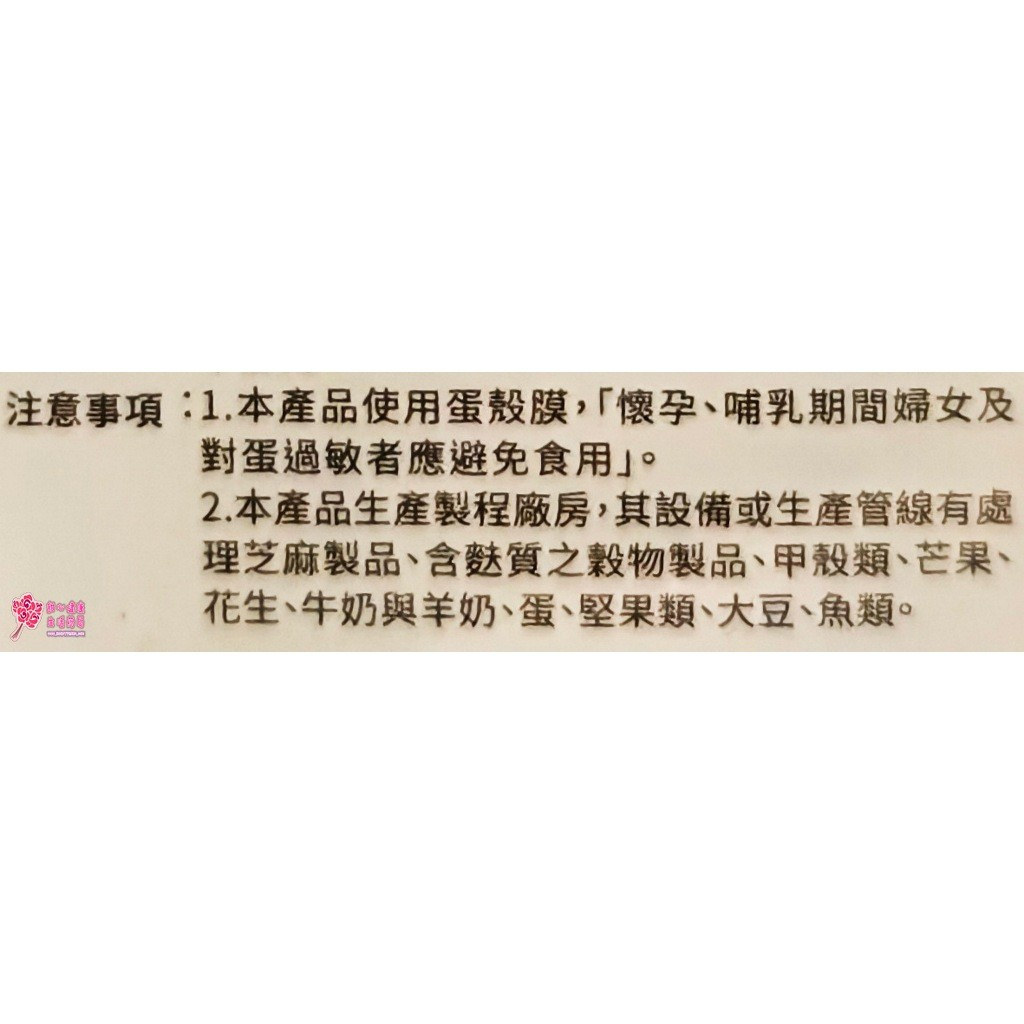 注意事項：1.本產品使用蛋殼膜，「懷孕、哺乳期間婦女及
對蛋過敏者應避免食用」。
2.本產品生產製程廠房，其設備或生產管線有處
理芝麻製品、含麩質之穀物製品、甲殼類、芒果、
花生、牛奶與羊奶、蛋、堅果類、大豆、魚類。